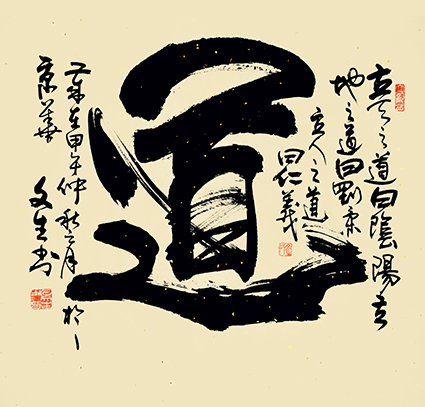 立天之道曰陰陽立
地之道曰剛柔
立人之道
曰仁義
道
歲在甲午仲秋之月於
京華 文生书